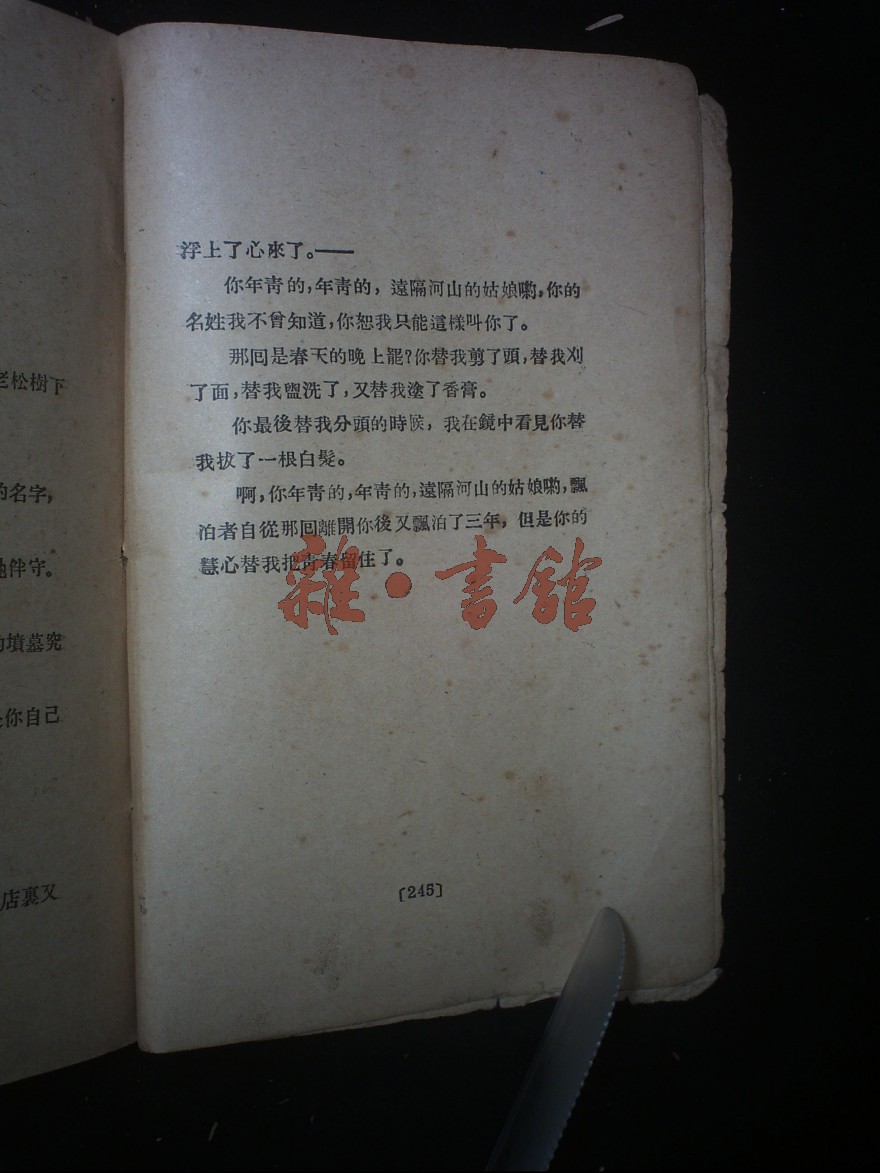 老松樹下
的名字,
地伴守。
墳墓究
你自己
店裏又
浮上了心來了。——
你年靑的,年靑的,遠隔河山的姑娘喲,你的
名姓我不曾知道,你恕我只能這樣叫你了。
那回是春天的晚上罷?你替我剪了頭,替我刈
了面,替我盥洗了,又替我塗了香膏。
你最後替我分頭的時候,我在鏡中看見你替
我拔了一根白髮。
啊,你年靑的,年靑的,遠隔河山的姑娘喲,飄
泊者自從那回離開你後又飄泊了三年,但是你的
慧心替我把靑春留住了。
雜·書館
〔245〕